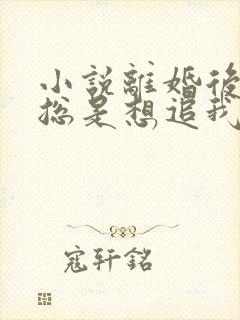 小說離婚後
總是想追我
寇轩銘